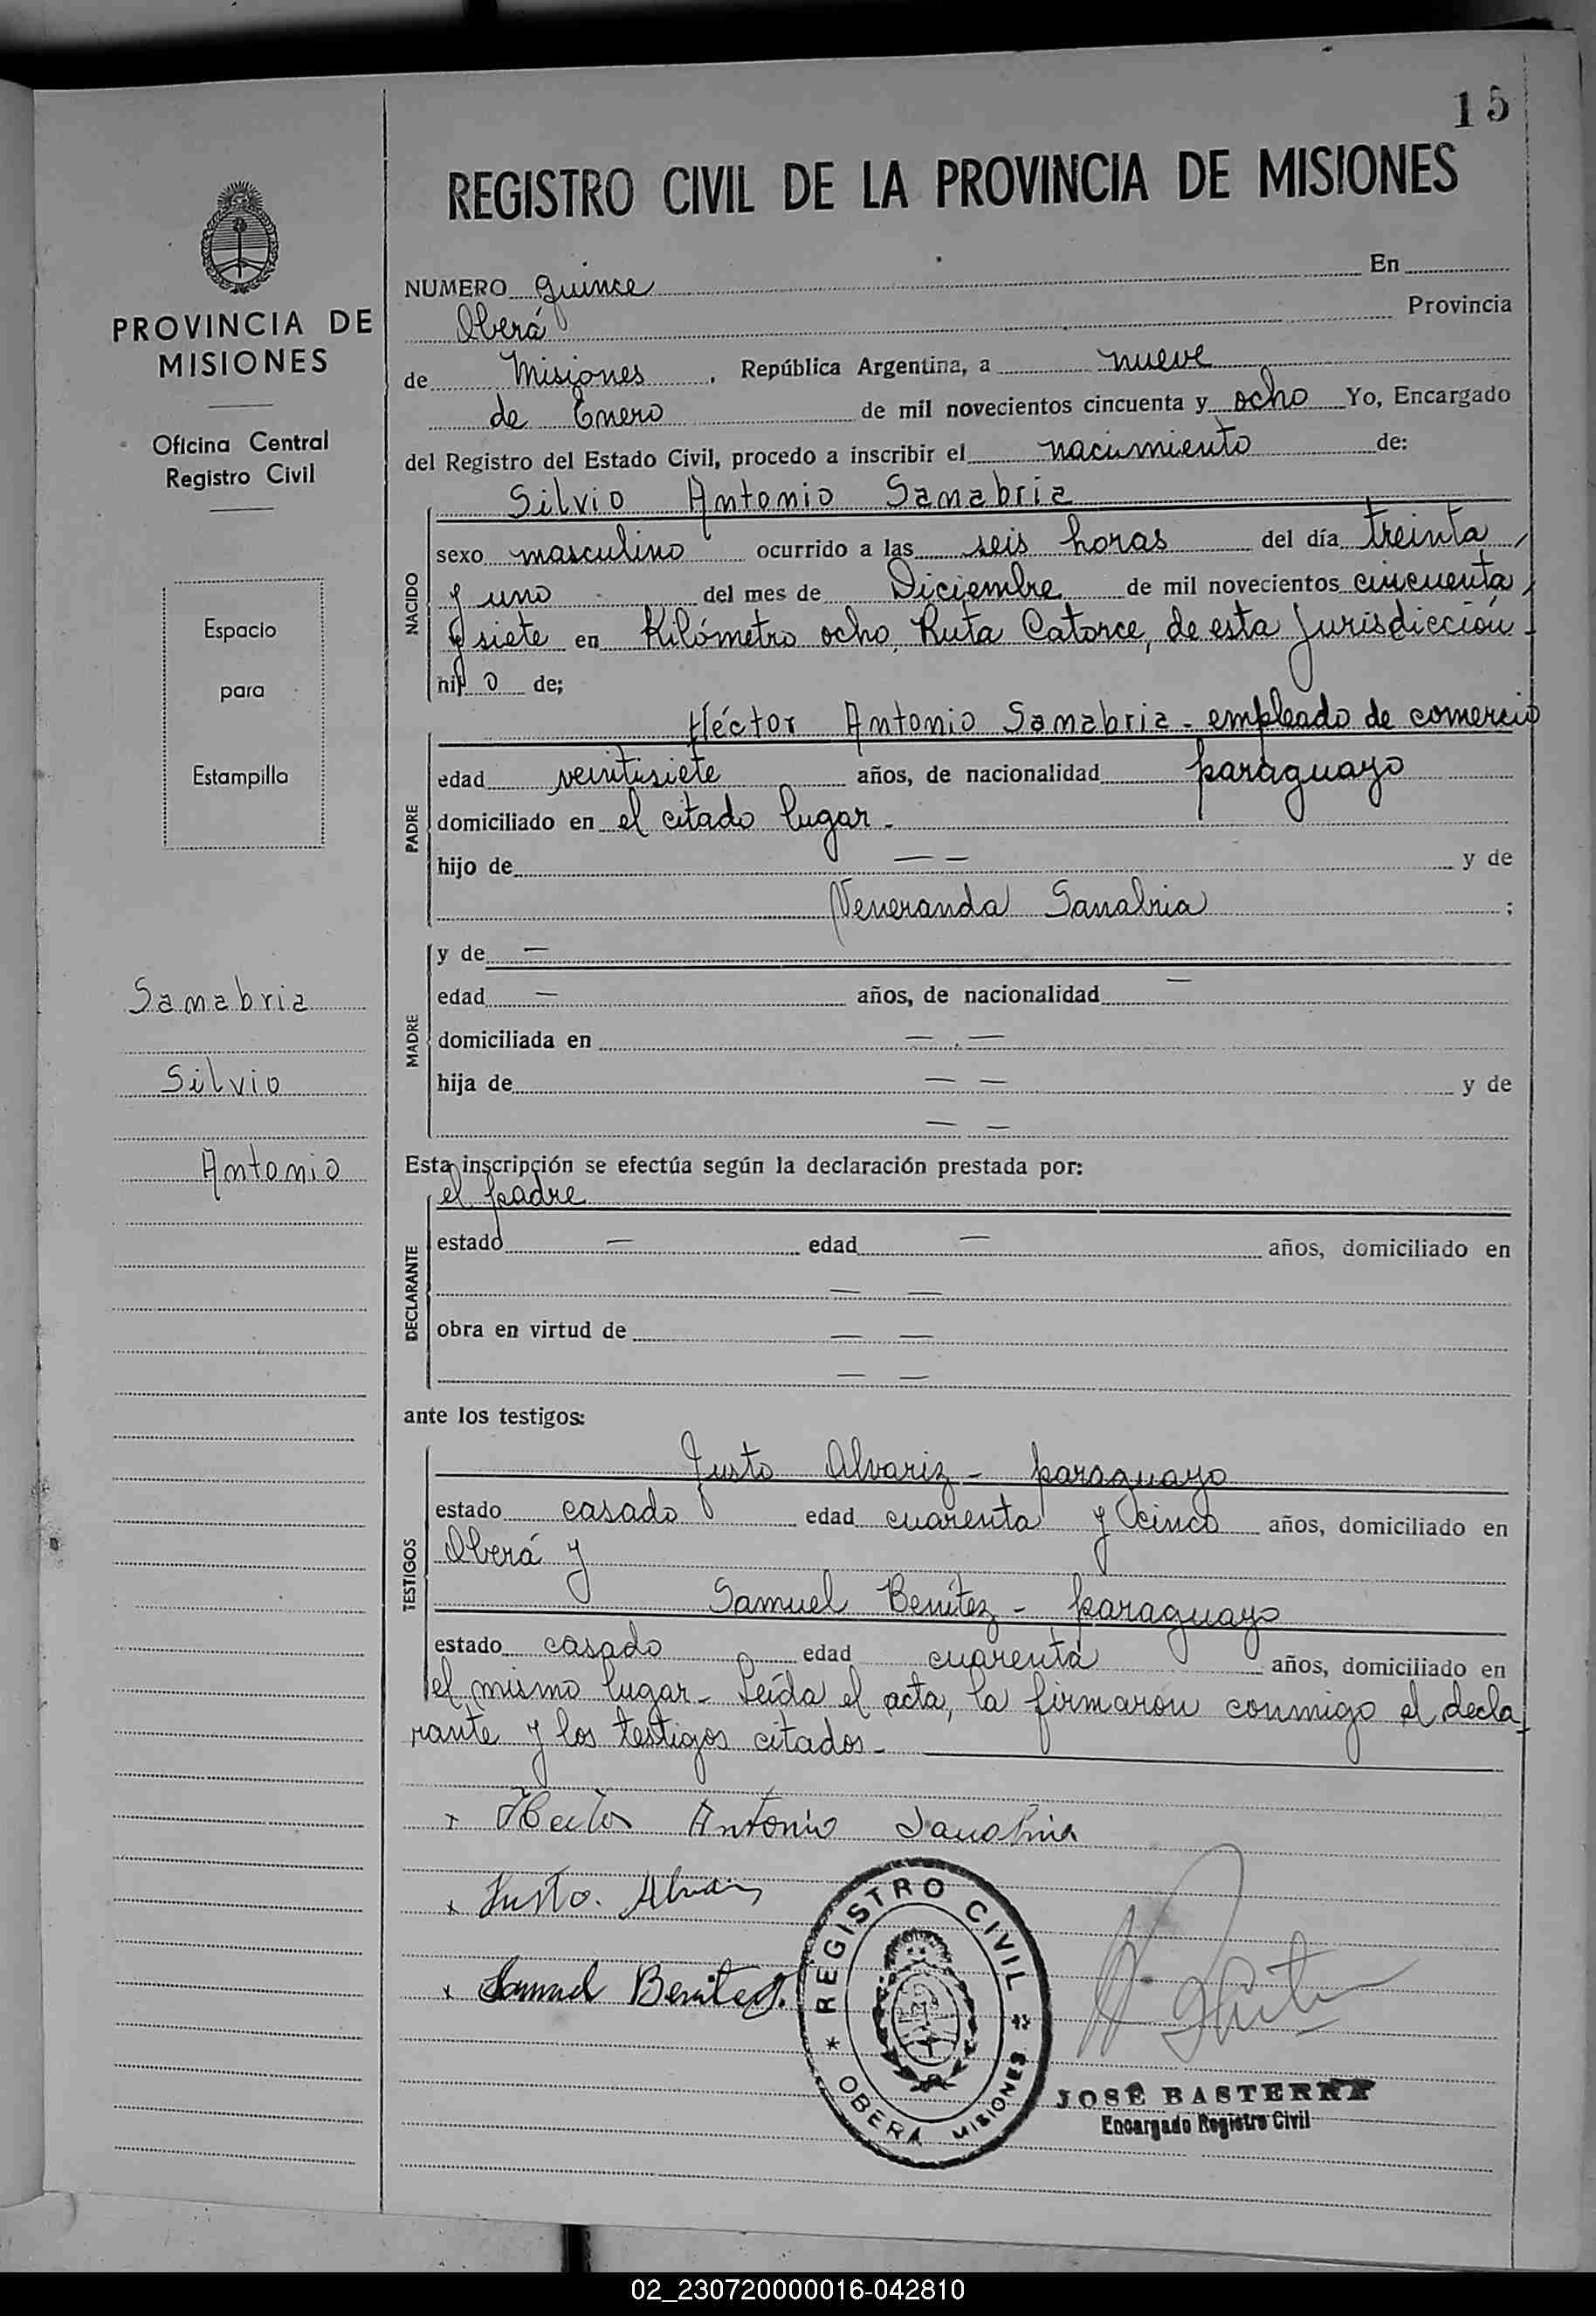 15
REGISTRO CIVIL DE LA PROVINCIA DE MISIONES
PROVINCIA DE
MISIONES
Oficina Central
Registro Civil
Espacio
para
Estampilla
Sanabria
Silvio
Antonio
NUMERO quince En
Oberá Provincia
de Misiones, República Argentina, a nueve
de Enero de mil novecientos cincuenta y ocho Yo, Encargado
del Registro del Estado Civil, procedo a inscribir el nacimiento de:
NACIDO
Silvio Antonio Sanabria
sexo masculino ocurrido a las seis horas del día treinta
y uno del mes de Diciembre de mil novecientos cincuenta
y siete en Kilómetro ocho, Ruta Catorce, de esta Jurisdicción
hij o de;
PADRE
Héctor Antonio Sanabria - empleado de comercio
edad veintisiete años, de nacionalidad paraguayo
domiciliado en el citado lugar -
hijo de — — y de
Veneranda Sanabria ;
MADRE
y de —
edad — años, de nacionalidad —
domiciliada en — . —
hija de — — y de
— —
Esta inscripción se efectúa según la declaración prestada por:
DECLARANTE
el padre
estado — edad — años, domiciliado en
— —
obra en virtud de — —
— —
ante los testigos:
TESTIGOS
Justo Alvariz - paraguayo
estado casado edad cuarenta y cinco años, domiciliado en
Oberá y
Samuel Benítez - paraguayo
estado casado edad cuarenta años, domiciliado en
el mismo lugar - Leída el acta, la firmaron conmigo el decla
rante y los testigos citados -
x Hector Antonio Sanabria
x Justo. Alvariz
x Samuel Benitez.
REGISTRO CIVIL
* OBERA MISIONES *
JOSÉ BASTERRA
Encargado Registro Civil
02_230720000016-042810